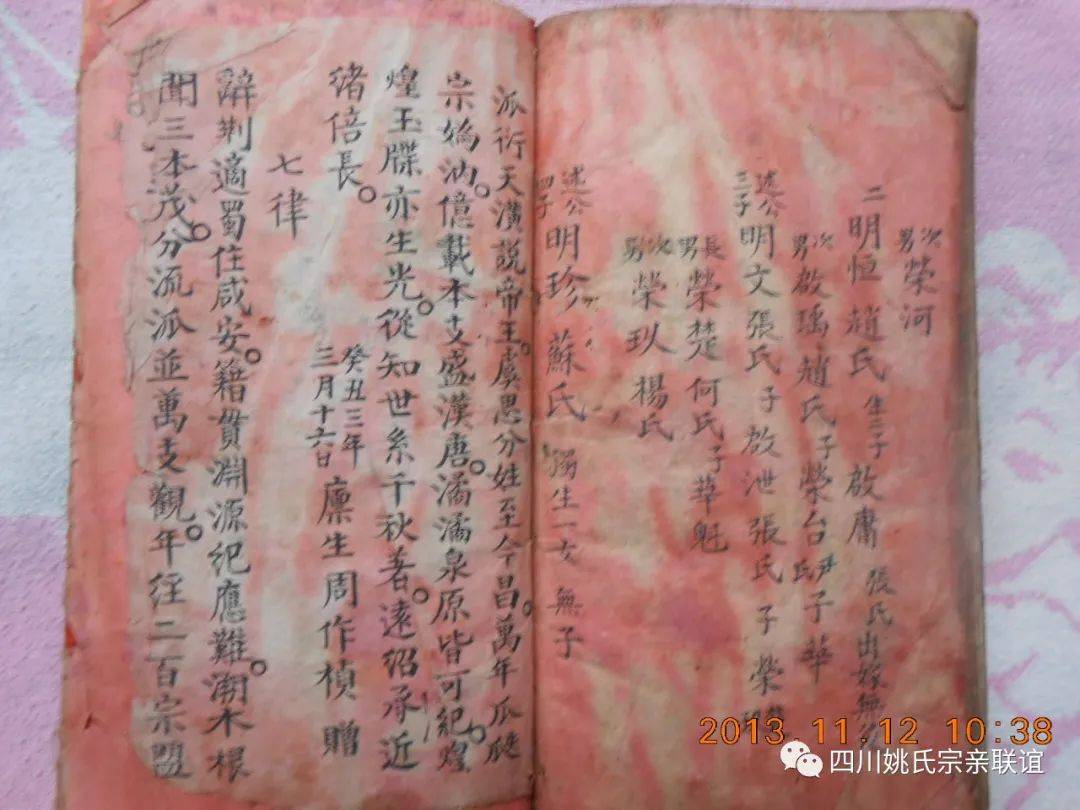 次男榮河
二明恒趙氏生三子啟庸張氏出嫁無
次男啟瑀趙氏子榮台尹氏子華
述公三子明文張氏子啟泄張氏子榮
長男榮楚何氏子華魁
次男榮玖楊氏
述公四子明珍蘇氏獨生一女無子
派衍天潢說帝王。虞思分姓至今昌。萬年瓜瓞
宗媯汭。億載本支盛漢唐。潏潏泉原皆可紀。煌
煌玉牒亦生光。從知世系千秋著。遠紹承近
緒倍長。
癸丑三年三月十六日廪生周作楨贈
七律
辭荆適蜀住咸安。籍貫淵源紀應難。溯木根
聞三本茂。分流派並萬支觀。年経二百宗盟
2013.11.12 10:38
四川姚氏宗亲联谊